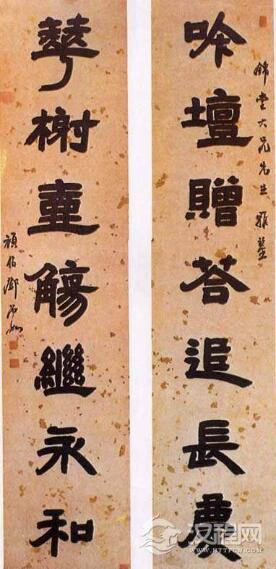 錦堂大兄先生雅鑒
吟壇贈荅追長慶
華榭壺觴繼永和
頑伯鄧石如
汉程网
WWW.HTTPCN.COM